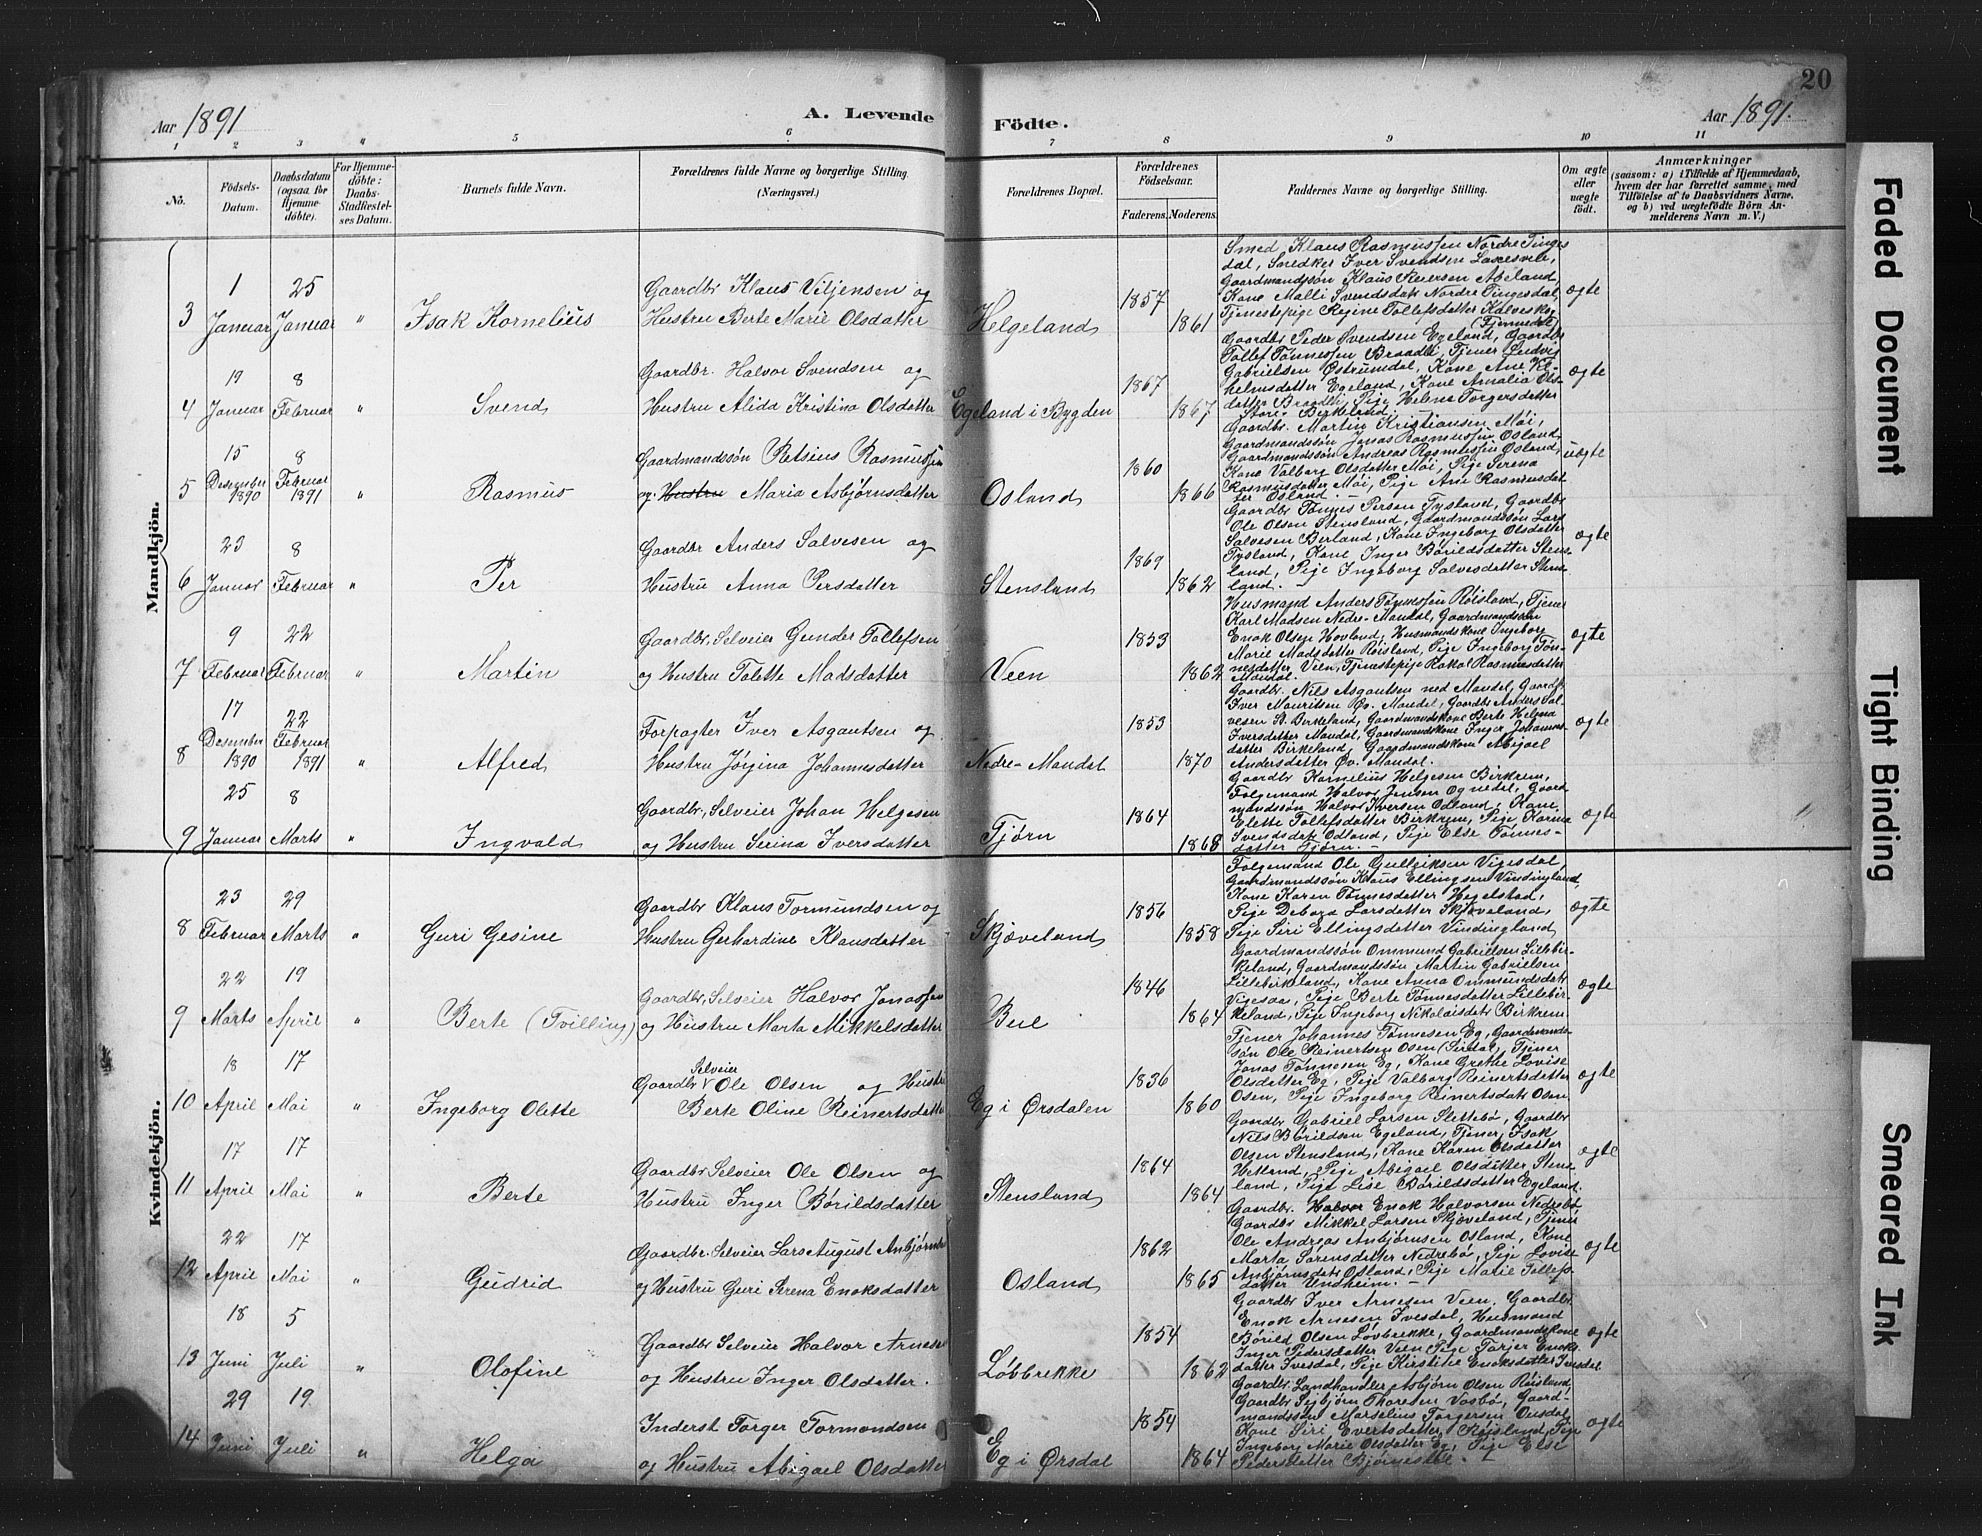 20
Aar 1891
A. Levende Födte.
Aar 1891.
1 2 3 4 5 6 7 8 9 10 11
No.
Födsels-Datum.
Daabsdatum (ogsaa for Hjemmedöbte).
For Hjemmedöbte: Daabs-Stadfæstelses Datum.
Barnets fulde Navn.
Forældrenes fulde Navne og borgerlige Stilling. (Næringsvei.)
Forældrenes Bopæl.
Forældrenes Födselsaar.
Faderens. Moderens.
Faddernes Navne og borgerlige Stilling.
Om ægte eller uægte födt.
Anmærkninger
(saasom: a) i Tilfælde af Hjemmedaab, hvem der har forrettet samme, med Tilföielse af to Daabsvidners Navne, og b) ved uægtefödte Börn Anmelderens Navn m. V.)
Mandkjön.
3 1 Januar 25 Januar " Isak Kornelius
Gaardbr Klaus Viljensen og
Hustru Berte Marie Olsdatter
Helgeland 1857 1861
Smed, Klaus Rasmussen Nordre Tinges
dal, Snedker Iver Svendsen
Gaardmandssøn Klaus Abeland,
Kone Malli Svendsdatr Nordre Tingesdal,
Tjenestepige Regine Tollefsdatter
ægte
4 19 Januar 8 Februar " Svend
Gaardbr. Halvor Svendsen og
Hustru Alida Kristina Olsdatter
Egeland i Bygden 1867 1867
Gaardbr Peder Svendsen Egeland, Gaardbr
Tollef Tønnessen Braadli, Tjener Ludvig
Gabrielsen Østrumdal, Kone Ane Vil-
helmsdatter Egeland, Kone Amalia Ols-
datter Braadli, Pige Helene Torgersdatter
Store-Birkeland.
ægte
5 15 Desember 1890 8 Februar 1891 " Rasmus
Gaardmandssøn Retsius Rasmussen
og Hustru Maria Asbjørnsdatter
Osland 1860 1866
Gaardbr. Martin Kristiansen Møi,
Gaardmandssøn Jonas Rasmussen Osland,
Gaardmandssøn Andreas Rasmussen Osland,
Kone Valborg Olsdatter Møi, Pige Serena
Rasmusdatter Møi, Pige Ane Rasmusdat
ter Osland. -
uægte
6 23 Januar 8 Februar " Per
Gaardbr Anders Salvesen og
Hustru Anna Persdatter
Stensland 1869 1862
Gaardbr Tønnes Persen Tysland, Gaardbr
Ole Olsen Stensland, Gaardmandssøn Lars
Salvesen Berland, Kone Ingeborg Olsdatter
Tysland, Kone Inger Børildsdatter Stens-
land, Pige Ingeborg Salvesdatter Stens-
land. -
ægte
7 9 Februar 22 Februar " Martin
Gaardbr, Selveier Gunder Tollefsen
og Hustru Tolette Madsdatter
Veen 1853 1862
Husmand Anders Tønnessøn Røisland, Tjener
Karl Madsen Nedre-Maudal, Gaardmandssøn
Enok Olsen Hovland, Husmandskone Ingeborg
Marie Madsdatter Røisland, Pige Ingeborg Tøn-
nesdatter Veen, Tjenestepige Rakel Rasmusdatter
Maudal.
ægte
8 17 Desember 1890 22 Februar 1891 " Alfred
Forpagter Iver Asgautsen og
Hustru Jørgina Johannesdatter
Nedre-Maudal 1853 1870
Gaardbr. Nils Asgautsen ned Maudal, Gaardbr
Iver Mauritsen Øv. Maudal, Gaardbr Anders Sal
vesen St. Birkeland, Gaardmandskone Berte Helena
Iversdatter Maudal, Gaardmandskone Inger Johannes
datter Birkeland, Gaardmandskone Abigael
Andersdatter Øv. Maudal.
ægte
9 25 Januar 8 Marts " Ingvald
Gaardbr, Selveier Johan Helgesen
og Hustru Serina Iversdatter
Tjørn 1864 1868
Gaardbr Kornelius Helgesen Birkrem,
Folgemand Halvor Jensen Ognedel, Gaard
mandssøn Halvor Iversen Odland, Kone
Elette Tollefsdatter Birkrem, Pige Karina
Svendsdatr Odland, Pige Else Tønnes-
datter Tjørn. -
ægte
"
Kvindekjön.
8 23 Februar 29 Marts " Guri Gesine
Gaardbr Klaus Tormundsen og
Hustru Gerhardine Klausdatter
Skjæveland 1856 1858
Folgemand Ole Gullriksen Vigesdal,
Gaardmandssøn Klaus Ellingsen Vindingland,
Kone Karen Tønnesdatter Hegelstad,
Pige Debora Larsdatter Skjæveland,
Pige Siri Ellingsdatter Vindingland
ægte
9 22 Marts 19 April " Berte (Tvilling)
Gaardbr, Selveier Halvor Jonassen
og Hustru Marta Mikkelsdatter
Bue 1846 1864
Gaardmandssøn Ommund Gabrielsen Lillebir-
keland, Gaardmandssøn Martin Gabrielsen
Lillebirkeland, Kone Anna Ommundsdatr
Vigesaa, Pige Berte Tønnesdatter Lillebir-
keland, Pige Ingeborg Nikolaisdatr Birkrem.
ægte
10 18 April 17 Mai " Ingeborg Olette
Gaardbr Selveier Ole Olsen og Hustru
Berte Oline Reinertsdatter
Eg i Ørsdalen 1836 1860
Tjener Johannes Tønnesen Eg, Gaardmands-
søn Ole Reinertsen Osen (Sirdal), Tjener
Jonas Tønnesen Eg, Kone Grethe Lovise
Olsdatter Eg, Pige Valborg Reinertsdatter
Osen, Pige Ingeborg Reinertsdatr Osen
ægte
11 17 April 17 Mai " Berte
Gaardbr Selveier Ole Olsen og
Hustru Inger Børildsdatter
Stensland 1864 1864
Gaardbr Gabriel Larsen Slettebø, Gaardbr
Nils Børildsen Egeland, Tjener, Isak
Olsen Stensland, Kone Karen Olsdatter
Hetland, Pige Abigael Olsdatter Stens
land, Pige Lise Børildsdatter Egeland.
ægte
12 22 April 17 Mai " Gudrid
Gaardbr. Selveier Lars August Asbjørnsen
og Hustru Guri Serena Enoksdatter
Osland 1862 1865
Gaardbr. Halvor Enok Halvorsen Nedrebø
Gaardbr Mikkel Larsen Skjæveland, Tjener
Ole Andreas Asbjørnsen Osland, Kone
Marta Sørensdatter Nedrebø, Pige Lovise
Asbjørnsdatr Osland, Pige Marie Tollefs-
datter Undheim. -
ægte
13 18 Juni 5 Juli " Olofine
Gaardbr Selveier Halvor Arnesen
og Hustru Inger Olsdatter.
Løvbrekke 1854 1862
Gaardbr Iver Arnesen Veen, Gaardbr
Enok Arnesen Ivesdal, Husmand
Børild Olsen Løvbrekke, Gaardmandskone
Inger Pedersdatter Veen Pige Torjer Enoks-
datter Ivesdal, Pige Kirstine Enoksdatter Ivesdal
ægte
14 29 Juni 19 Juli " Helga
Inderst Torger Tormondsen
og Hustru Abigael Olsdatter
Eg i Ørsdal 1854 1864
Gaardbr, Landhandler Asbjørn Olsen Røisland
Gaardbr Sigbjørn Thorsen Vasbø, Gaard-
mandssøn Marselius Torgersen Ousdal,
Kone Siri Evertsdatter Røisland, Pige
Ingeborg Marie Olsdatter Eg, Pige Else
Pedersdatter Bjørnestøl. -
ægte
Faded Document
Tight Binding
Smeared Ink